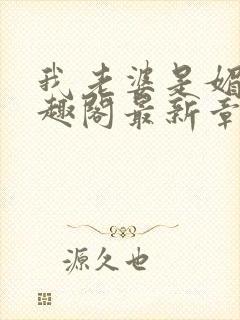 我老婆是媚
趣阁最新章
源久也